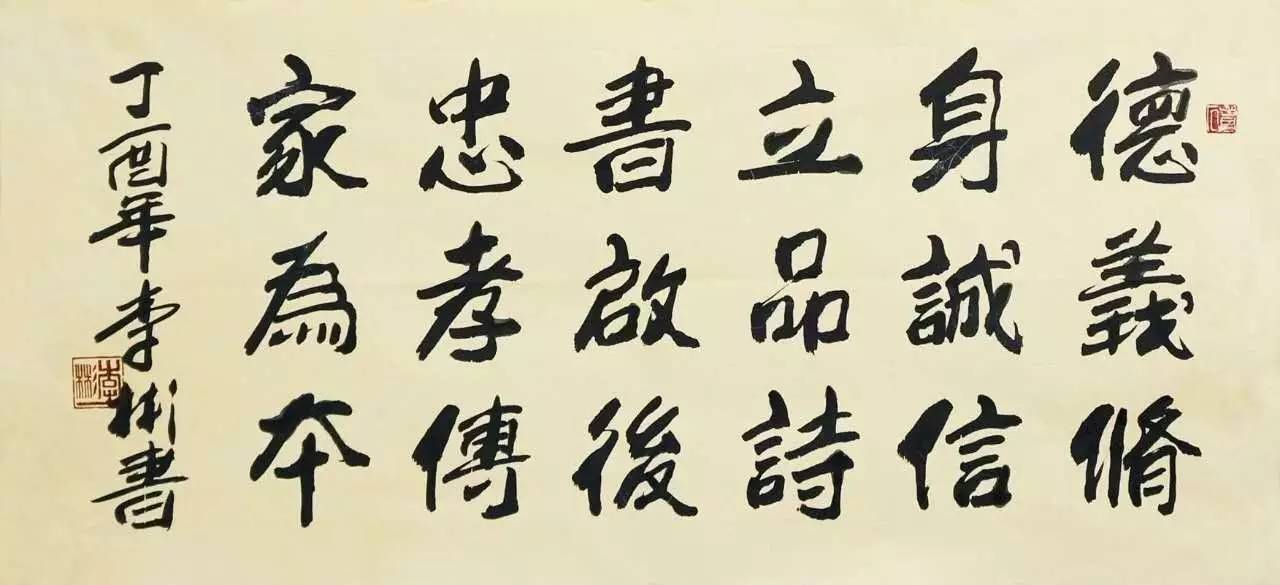 德義脩
身誠信
立品詩
書啟後
忠孝傳
家為本
丁酉年李彬書